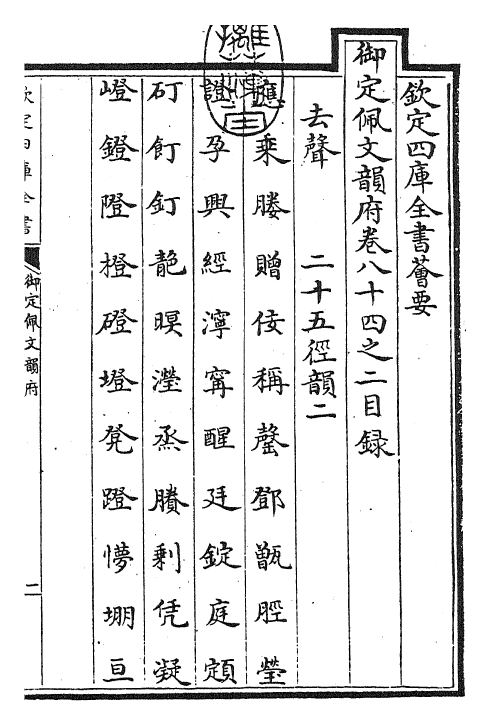 欽定四庫全書薈要
御定佩文韻府卷八十四之二目録
去聲 二十五徑韻二
應乘媵贈佞稱罄鄧甑脛瑩
證孕興經濘甯醒廷錠庭顁
矴飣釘靘暝瀅烝賸剩凭凝
嶝鐙隥橙磴墱凳蹬懜堋亘
欽定四庫全書
御定佩文韻府